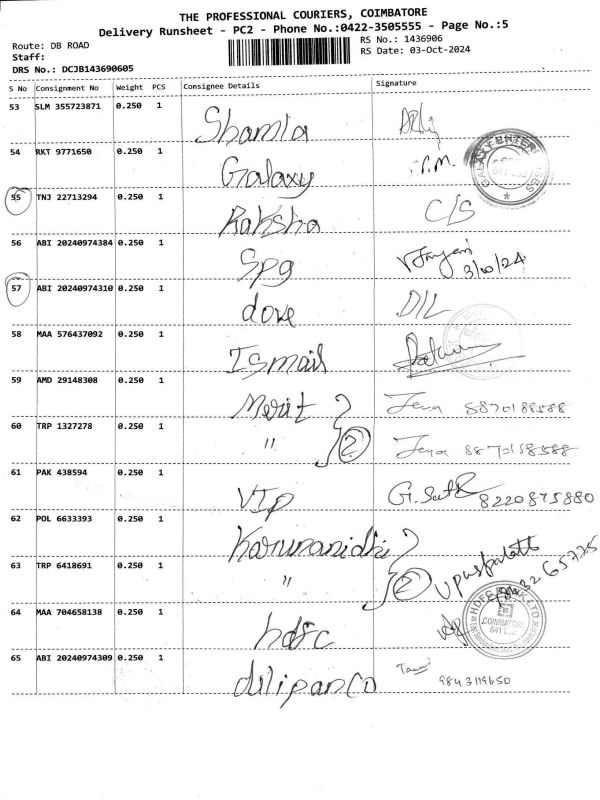 THE PROFESSIONAL COURIERS, COIMBATORE
Delivery Runsheet - PC2 - Phone No.:0422-3505555 - Page No.:5
Route: DB ROAD
RS No.: 1436906
Staff:
RS Date: 03-Oct-2024
DRS No.: DCJB143690605
S No Consignment No Weight PCS Consignee Details Signature
53 SLM 355723871 0.250 1 Shamla
54 RKT 9771650 0.250 1 Galaxy
GALAXY ENTERPRISES
55 TNJ 22713294 0.250 1 Raksha C/S
56 ABI 20240974384 0.250 1 Spg 3/10/24
57 ABI 20240974310 0.250 1 dove DIL
58 MAA 576437092 0.250 1 Ismail
59 AMD 29148308 0.250 1 Merit Jena
60 TRP 1327278 0.250 1 " 2 Jena
61 PAK 438594 0.250 1 VIP 8220875880
62 POL 6633393 0.250 1 Karunanidhi
63 TRP 6418691 0.250 1 " 2
64 MAA 704658138 0.250 1 hdfc
HDFC BANK LTD
COIMBATORE
65 ABI 20240974309 0.250 1 dilipanco 9843119650